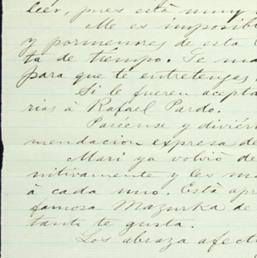 leer, pues está muy
Me es imposib
y pormenores de esta
ta de tiempo. Te ma
para que te entretengas
Si le fueren acepta
rias á Rafael Pardo.
Paséense y divier
mendacion expresa de
Mari ya volvió de
nitivamente y les m
á cada uno. Está apr
famosa Mazurka de
tanto te gusta.
Los abraza afect